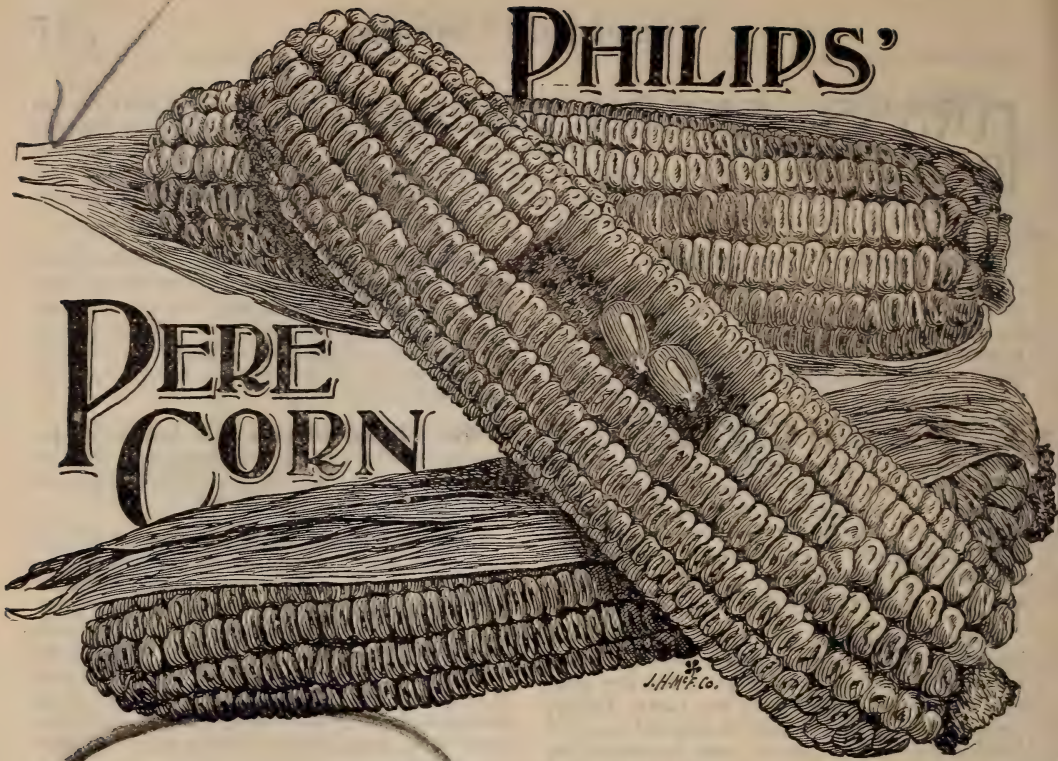 PHILIPS'
PERE
CORN
J.H.McF.Co.